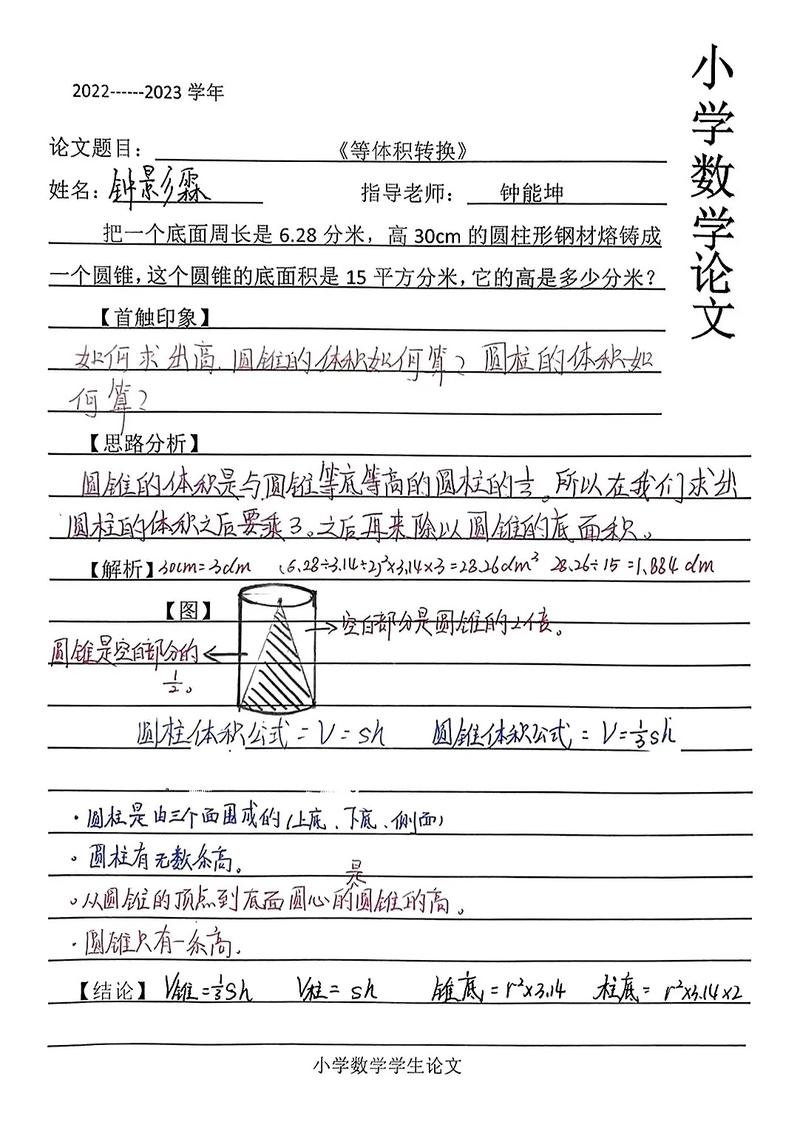 小学数学论文
2022------2023 学年
论文题目：《等体积转换》
姓名：钟景彡霖 指导老师：钟能坤
把一个底面周长是 6.28 分米，高 30cm 的圆柱形钢材熔铸成
一个圆锥，这个圆锥的底面积是 15 平方分米，它的高是多少分米？
【首触印象】
如何求出高，圆锥的体积如何算？圆柱的体积如
何算？
【思路分析】
圆锥的体积是与圆锥等底等高的圆柱的1/3。所以在我们求出
圆柱的体积之后要乘3。之后再来除以圆锥的底面积。
【解析】30cm=3dm (6.28÷3.14÷2)²×3.14×3=28.26dm³ 28.26÷15=1.884 dm
【图】
空白部分是圆锥的2倍。
圆锥是空白部分的
1/2。
圆柱体积公式=V=sh 圆锥体积公式=V=1/3sh
·圆柱是由三个面围成的(上底、下底、侧面)
。圆柱有无数条高。
是
。从圆锥的顶点到底面圆心的圆锥的高。
·圆锥只有一条高.
【结论】V锥=1/3Sh V柱=sh 锥底=r²×3.14 柱底=r²×3.14×2
小学数学学生论文